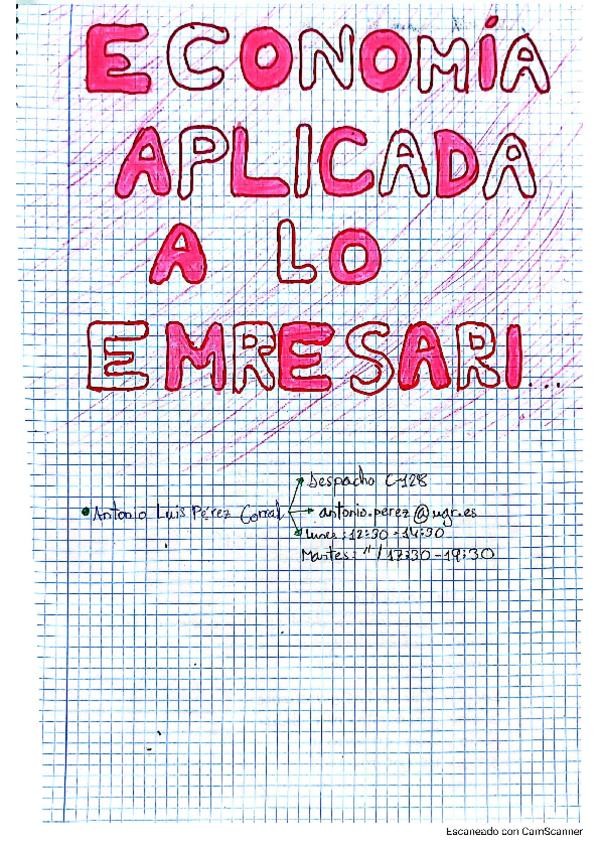 ECONOMÍA
APLICADA
A LO
EMRESARI...
Despacho C-128
• Antonio Luis Pérez Corral
antonio.perez@ugr.es
Lunes: 12:30 - 14:30
Martes: " / 17:30 - 19:30
Escaneado con CamScanner